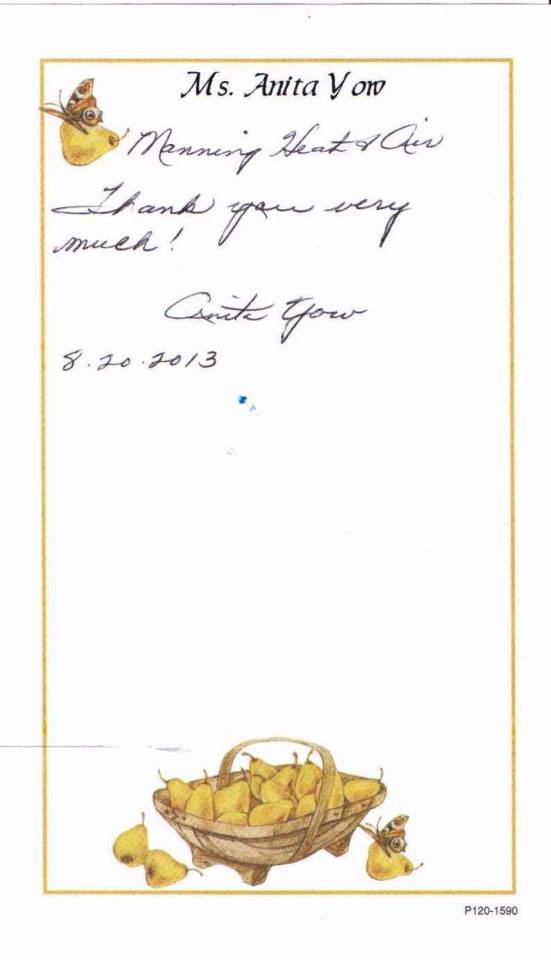 Ms. Anita Yow
Manning Heat & Air
Thank you very
much!
Anita Yow
8.20.2013
P120-1590